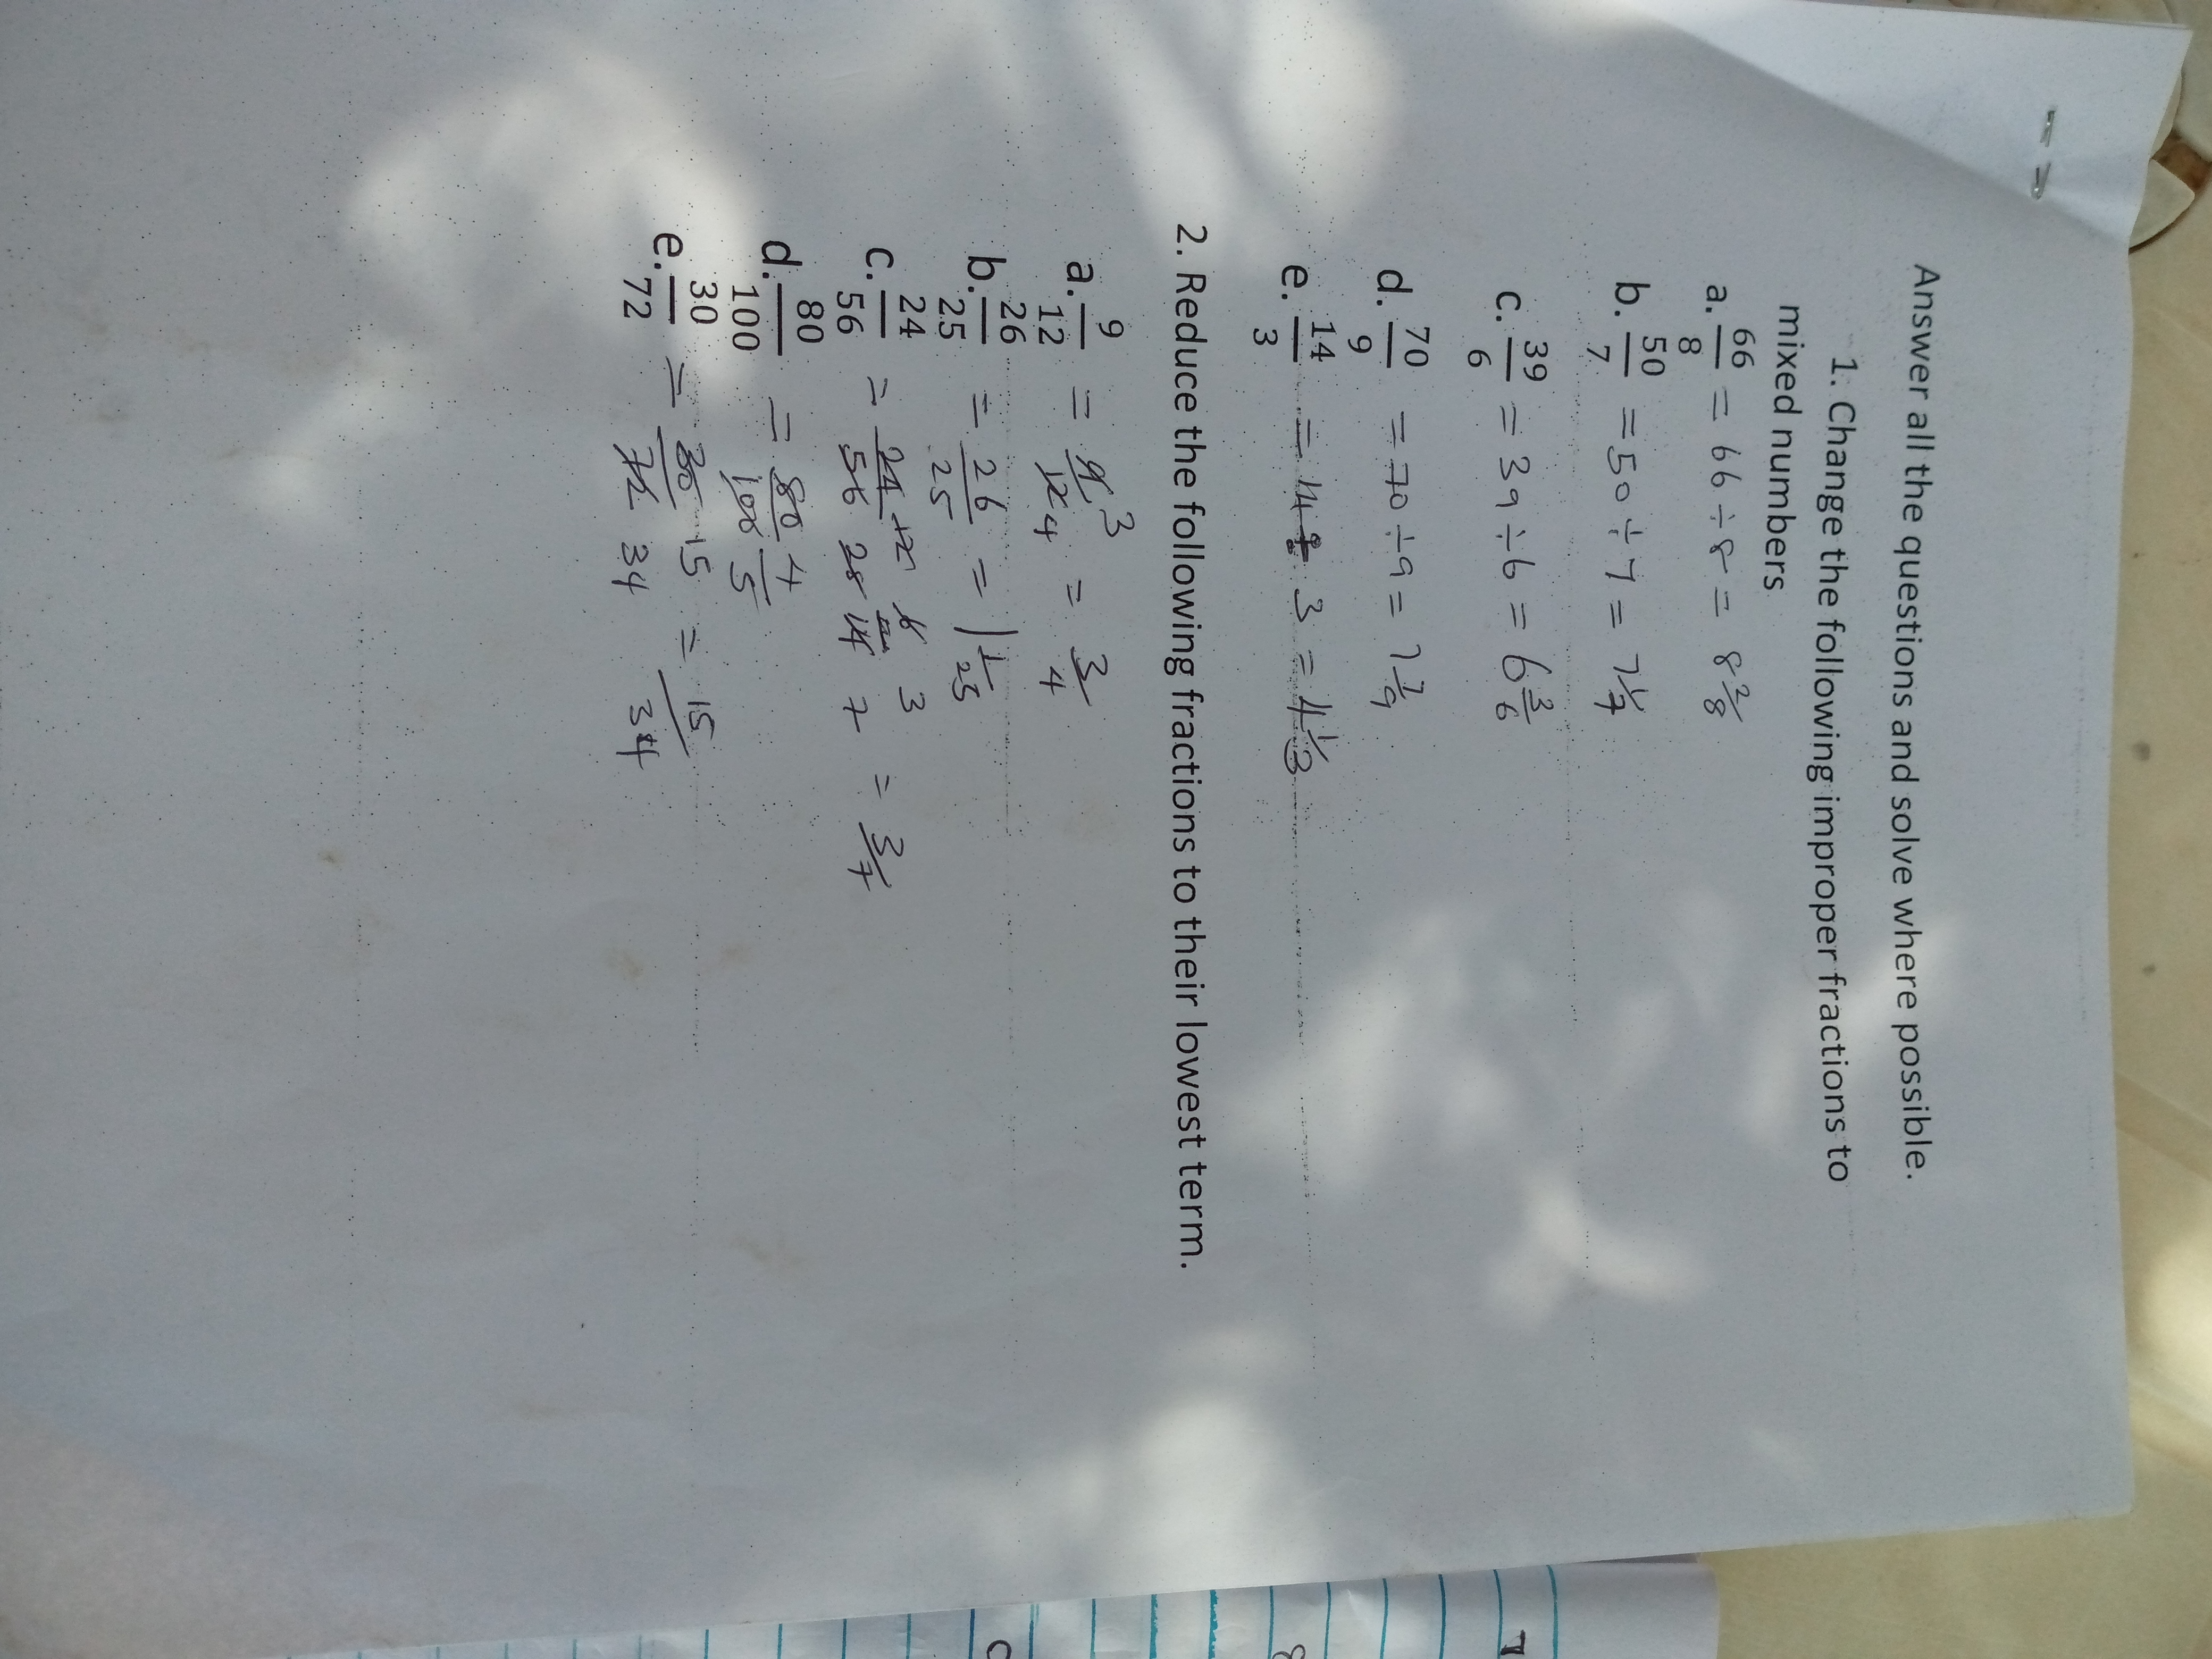 Answer all the questions and solve where possible.
1. Change the following improper fractions to
mixed numbers
a. 66/8 = 66 ÷ 8 = 8 2/8
b. 50/7 = 50 ÷ 7 = 7 1/7
c. 39/6 = 39 ÷ 6 = 6 3/6
d. 70/9 = 70 ÷ 9 = 7 7/9
e. 14/3 = 14 ÷ 3 = 4 1/3
2. Reduce the following fractions to their lowest term.
a. 9/12 = 9/12 3/4 = 3/4
b. 26/25 = 26/25 = 1 1/25
c. 24/56 = 24/56 12/28 6/14 3/7 = 3/7
d. 80/100 = 80/100 4/5
e. 30/72 = 30/72 15/34 = 15/34